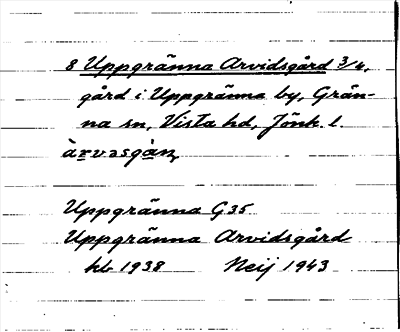 8 Uppgränna Arvidsgård 3/4,
gård i Uppgränna by, Grän-
na sn, Vista hd, Jönk. l.
Uppgränna G35
Uppgränna Arvidsgård
hb 1938 Neij 1943